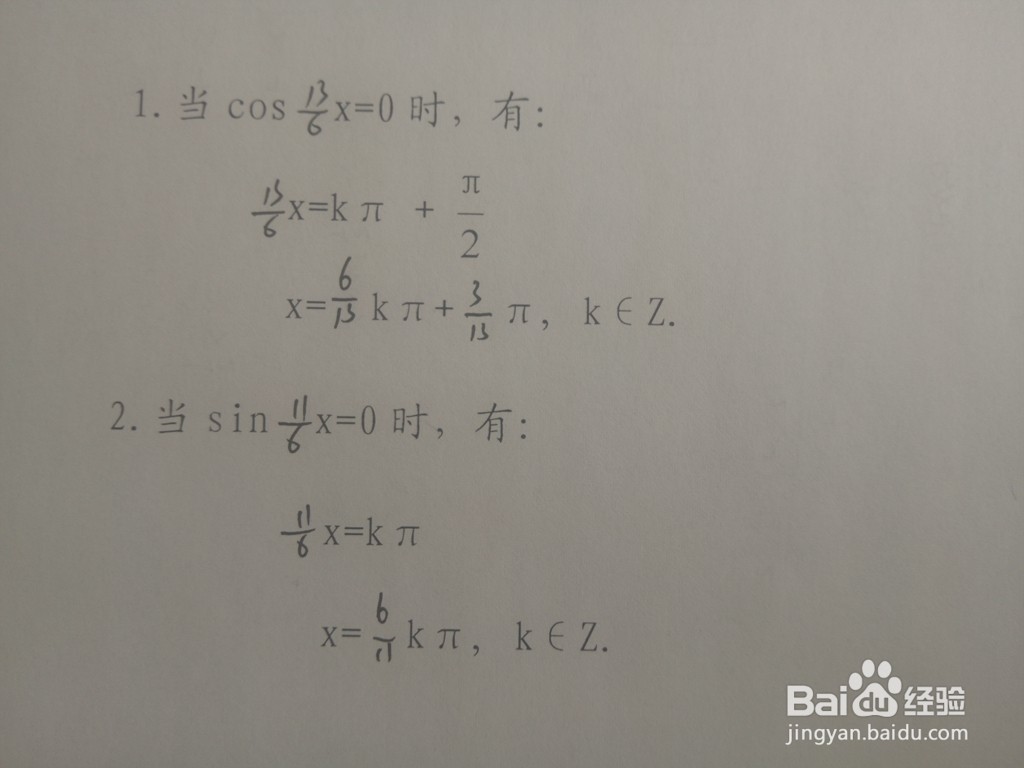 1. 当 cos 13/6 x=0 时，有：
13/6 x=kπ + π/2
x= 6/13 kπ+ 3/13 π，k∈Z.
2. 当 sin 11/6 x=0 时，有：
11/6 x=kπ
x= 6/11 kπ，k∈Z.
Bai 经验
jingyan.baidu.com